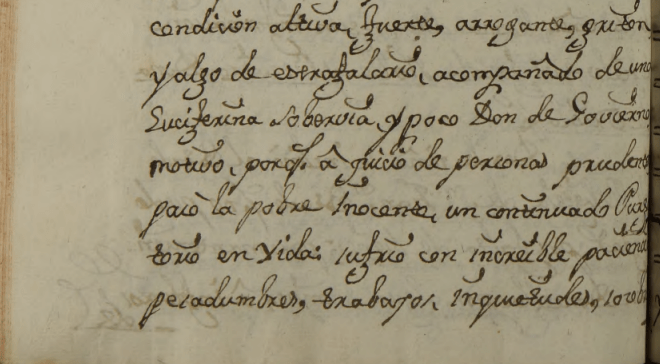 condicion altiva, fuerte, arrogante, griton,
y algo de estrafalario, acompañado de una
Luciferina sobervia, y poco Don de Govierno
motivo, porq̃. â juicio de personas prudentes
pasò la pobre Inocente, un continuado Purga
torio en Vida: sufrio con increible paciencia
pesadumbres, trabajos, inquietudes,